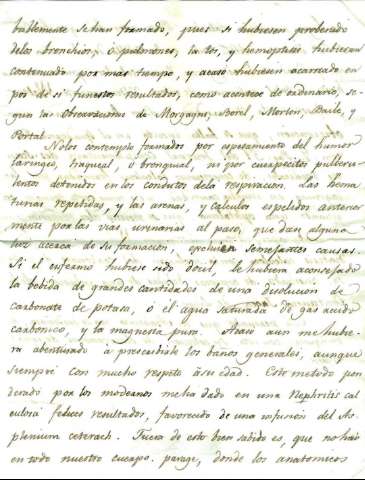 bablemente se han formado, pues si hubiesen provenido
delos bronchios, ó pulmones, la tos, y hemoptisis hubieran
continuado por mas tiempo, y acaso hubiesen acarreado en
pos de si funestos resultados, como acontece de ordinario, se-
gun las Observaciones de Morgagni, Borel, Morton, Baile, y
Portal.
Nolos contemplo formados por espesamiento del humor
laringeo, traqueal, ó bronquial, ni por cuerpecitos pulveru-
lentos detenidos en los conductos dela respiracion. Las hema
turias repetidas, y las arenas, y calculos espelidos anterior
mente por las vias urinarias al paso, que dan alguna
luz acerca de su formacion, excluien semejantes causas.
Si el enfermo hubiese sido docil, le hubiera aconsejado
la bebida de grandes cantidades de una disolucion de
carbonate de potasa, o él agua saturada de gas acido
carbonico, y la magnesia pura. Acaso aun me hubie-
ra abenturado á prescribirle los baños generales, aunque
siempre con mucho respeto àsu edad. Este metodo pon
derado por los modernos meha dado en una Nephritis cal
culosa felices resultados, favorecido de una infusion del As-
plenium ceterach. Fuera de esto bien sabido es, que no hai
en todo nuestro cuerpo parage, donde los anatomicos